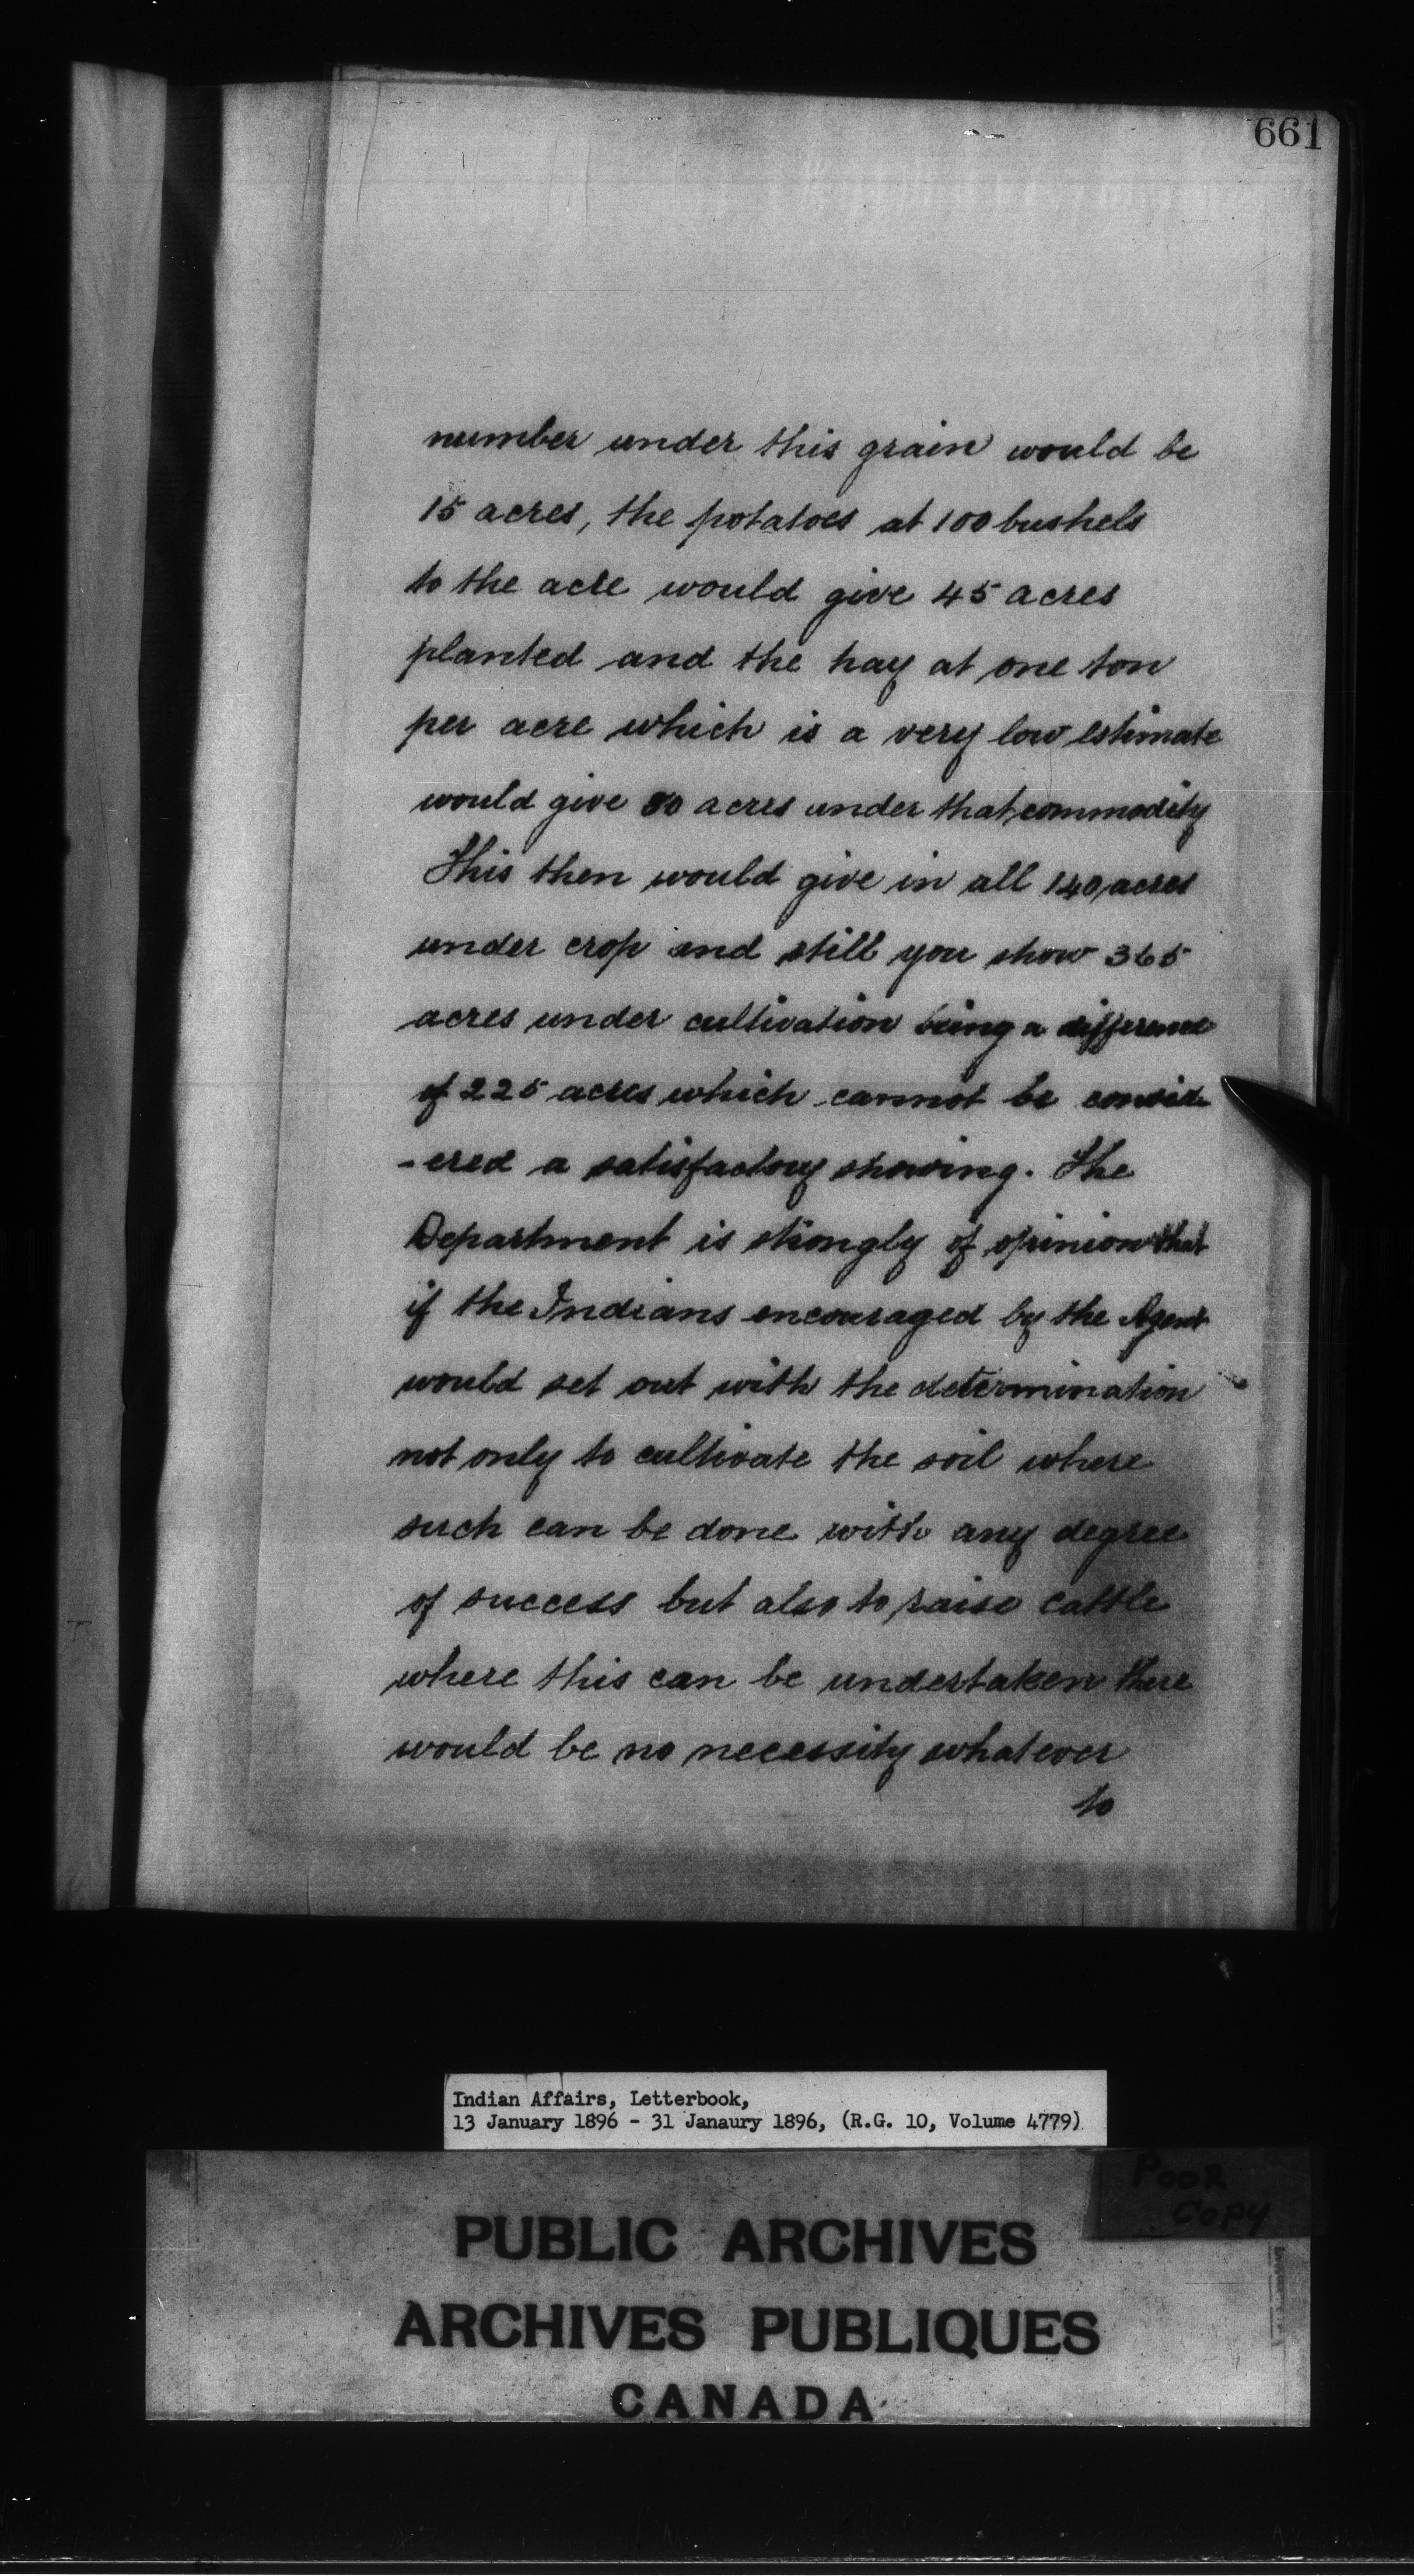 661
number under this grain would be
15 acres, the potatoes at 100 bushels
to the acre would give 45 acres
planted and the hay at one ton
per acre which is a very low estimate
would give 80 acres under that commodity
This then would give in all 140 acres
under crop and still you show 365
acres under cultivation being a difference
of 225 acres which cannot be consid
-ered a satisfactory showing. The
Department is strongly of opinion that
if the Indians encouraged by the Agent
would set out with the determination
not only to cultivate the soil where
such can be done with any degree
of success but also to raise cattle
where this can be undertaken there
would be no necessity whatever
to
Indian Affairs, Letterbook,
13 January 1896 - 31 Janaury 1896, (R.G. 10, Volume 4779)
POOR
COPY
PUBLIC ARCHIVES
ARCHIVES PUBLIQUES
CANADA